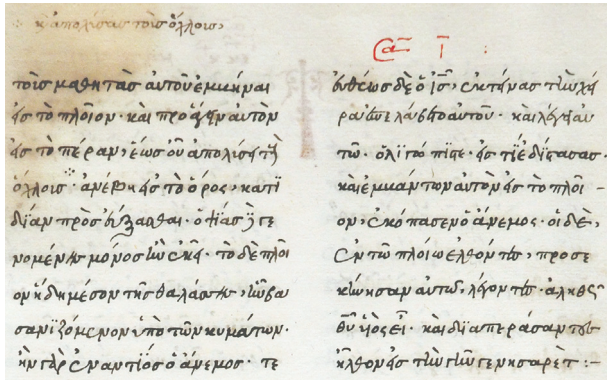 κ ἀπολύσας τοὺς ὄχλους,
τοὺς μαθητὰς αὐτοῦ ἐμβῆναι
εἰς τὸ πλοῖον· καὶ προάγειν αὐτὸν
εἰς τὸ πέραν, ἕως οὗ ἀπολύσῃ τοὺς
ὄχλους· ἀνέβη εἰς τὸ ὄρος, κατϊ
δίαν προσεύξασθαι. ὀψίας δὲ γε
νομένης μόνος ἦν ἐκεῖ· τὸ δὲ πλοῖ
ον ἤδη μέσον τῆς θαλάσσης, ἦν βα
σανιζόμενον ὑπὸ τῶν κυμάτων·
ἦν γὰρ ἐναντίος ὁ ἄνεμος· τε
εὐθέως δὲ ὁ ις, ἐκτείνας τὴν χεῖ
ρα ἐπελάβετο αὐτοῦ· καὶ λέγει αὐ
τῶ· ὀλιγόπιστε· εἰς τί ἐδίστασας·
καὶ ἐμβάντων αὐτῶν εἰς τὸ πλοῖ-
ον, ἐκόπασεν ὁ ἄνεμος· οἱ δὲ,
ἐν τῶ πλοίω ἐλθόντες, προσε
κύνησαν αὐτῶ, λέγοντες· ἀληθῶς
θυ υἱὸς εἶ· καὶ διαπεράσαντες
ἦλθον εἰς τὴν γῆν γενησαρέτ :-